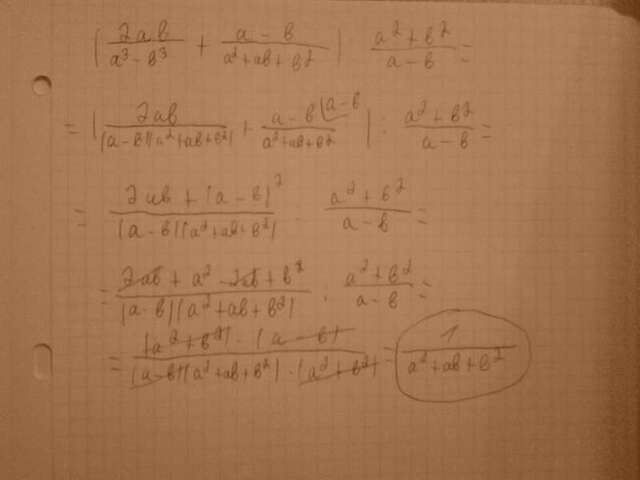 (2ab/(a³-b³) + (a-b)/(a²+ab+b²)) : (a²+b²)/(a-b) =
= (2ab/((a-b)(a²+ab+b²)) + (a-b(a-b)/(a²+ab+b²)) : (a²+b²)/(a-b) =
= (2ab+(a-b)²)/((a-b)(a²+ab+b²)) : (a²+b²)/(a-b) =
= (2ab+a²-2ab+b²)/((a-b)(a²+ab+b²)) : (a²+b²)/(a-b) =
= ((a²+b²)·(a-b))/((a-b)(a²+ab+b²)·(a²+b²)) = 1/(a²+ab+b²)